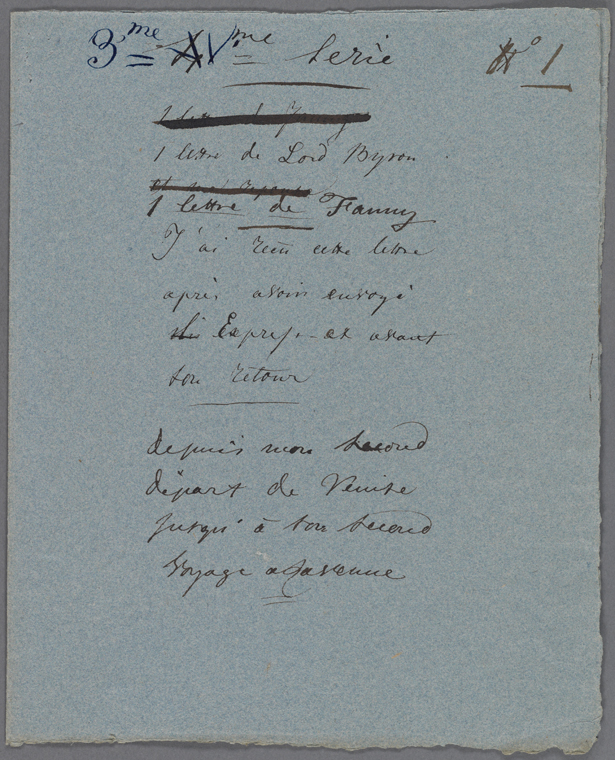 3.me XVme Serie N° 1
1 lettre de Lord Byron
1 lettre de Fanny
J'ai reçu cette lettre
après avoir envoyé
Express et avant
son retour
depuis mon second
départ de Venise
jusqu'à son second
Voyage a Ravenne